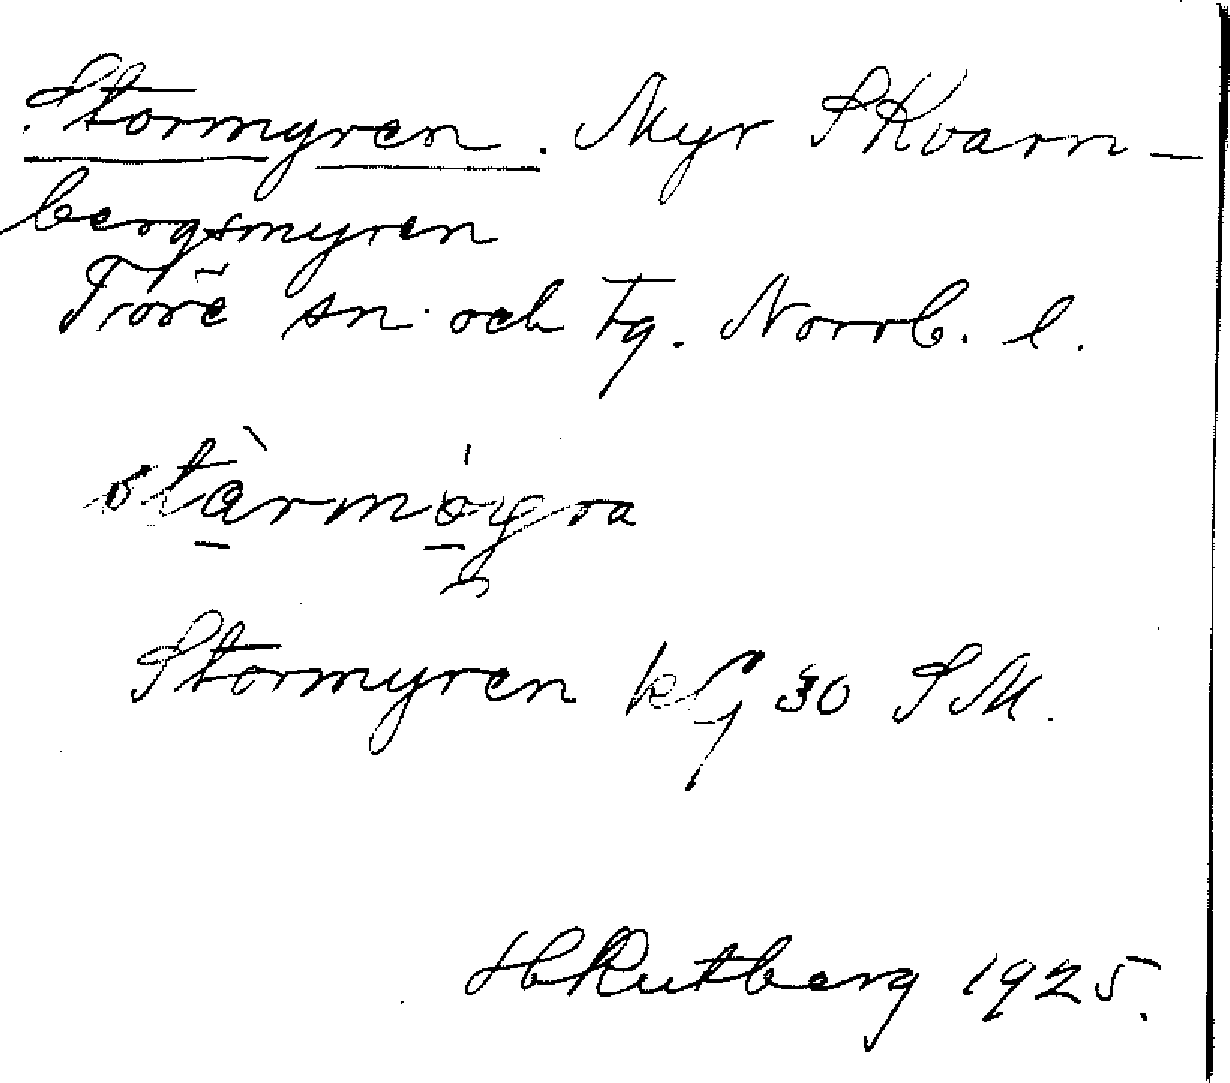 Stormyren. Myr S Kvarn-
bergsmyren
Töre sn och tg. Norrb. l.
Stormyren 30 SM.
H Rutberg 1925.